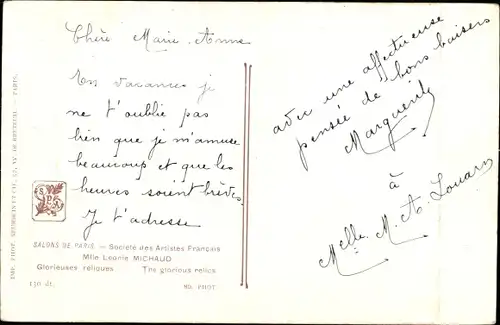 Chère Marie-Anne
En vacances je
ne t'oublie pas
bien que je m'amuse
beaucoup et que les
heures soient brèves.
Je t'adresse
avec une affectueuse
pensée de bons baisers
Marguerite
à
Melle M. A. Louarn
SALONS DE PARIS. — Société des Artistes Français
Mlle Leonie MICHAUD
Glorieuses reliques The glorious relics
130 ét. ND. PHOT